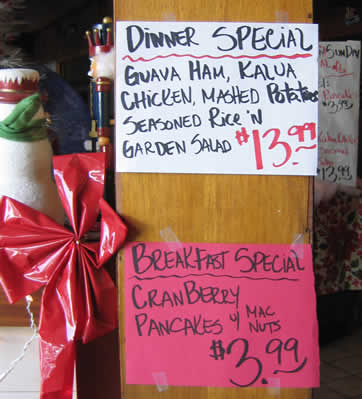 DINNER SPECIAL
GUAVA HAM, KALUA
CHICKEN, MASHED POTATOES
SEASONED RICE 'N
GARDEN SALAD $13.99
BREAKFAST SPECIAL
CRANBERRY
PANCAKES w/ MAC
NUTS
$3.99